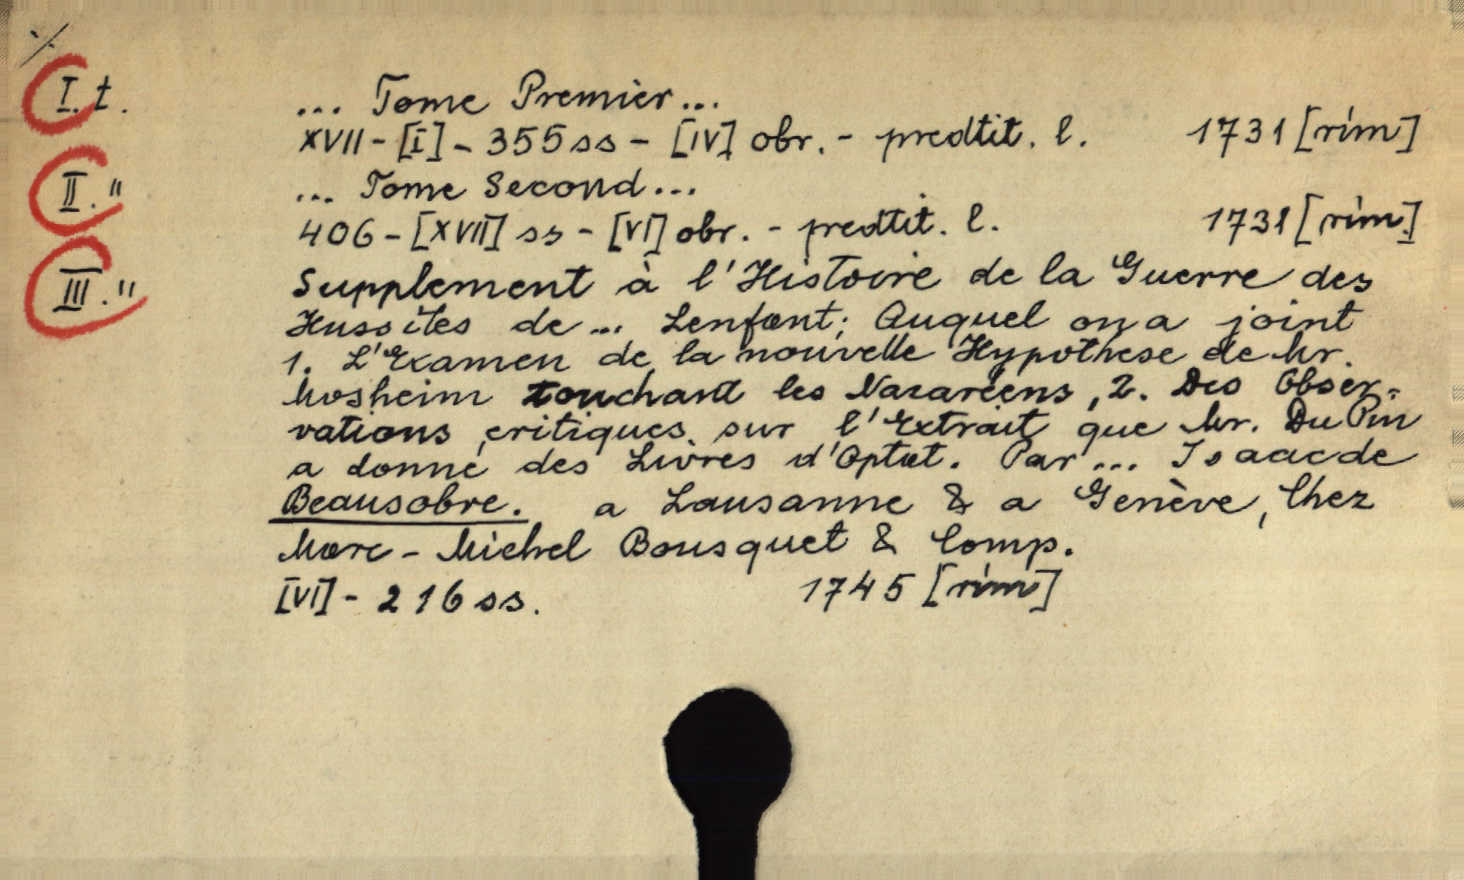 ./.
I. t. ... Tome Premier ...
XVII - [I] - 355 ss - [IV] obr. - predtit. l. 1731 [rím]
II. " ... Tome Second ...
406 - [XVII] ss - [VI] obr. - predtit. l. 1731 [rím.]
III. " Supplement à l'Histoire de la Guerre des
Hussites de ... Lenfant; Auquel on a joint
1. L'Examen de la nouvelle Hypothese de Mr.
Mosheim touchant les Nazaréens, 2. Des Obser-
vations critiques sur l'Extrait que Mr. Du Pin
a donné des Livres d'Optat. Par ... Isaac de
Beausobre. a Lausanne & a Genève, Chez
Marc - Michel Bousquet & Comp.
[VI] - 216 ss. 1745 [rím]